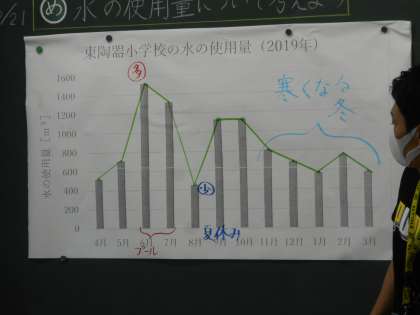 /21 め 水の使用量について考えよう
東陶器小学校の水の使用量(2019年)
水の使用量[m³]
1600
1400
1200
1000
800
600
400
200
0
多
少
寒くなる
冬
4月 5月 6月 7月 8月 9月 10月 11月 12月 1月 2月 3月
プール
夏休み